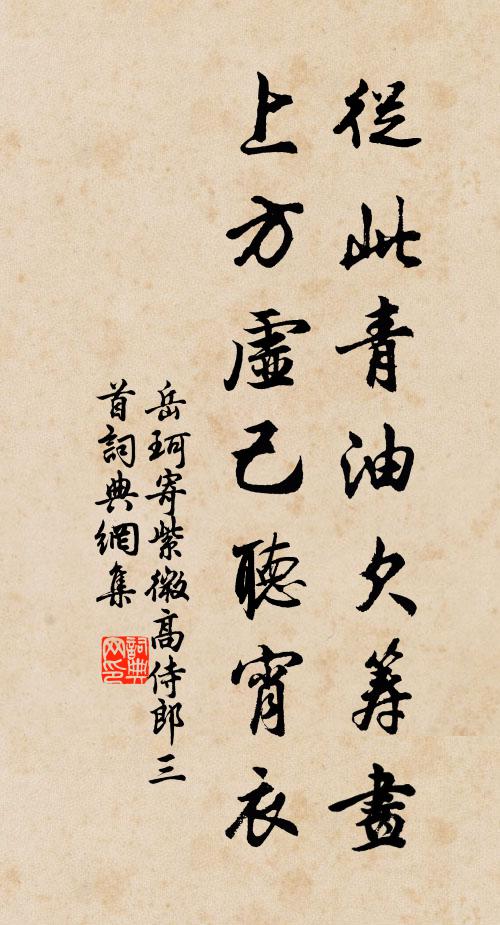 從此青油欠筭畫
上方虛己聽宵衣
岳珂寄紫微高侍郎三
首詞典網集
詞典
网印